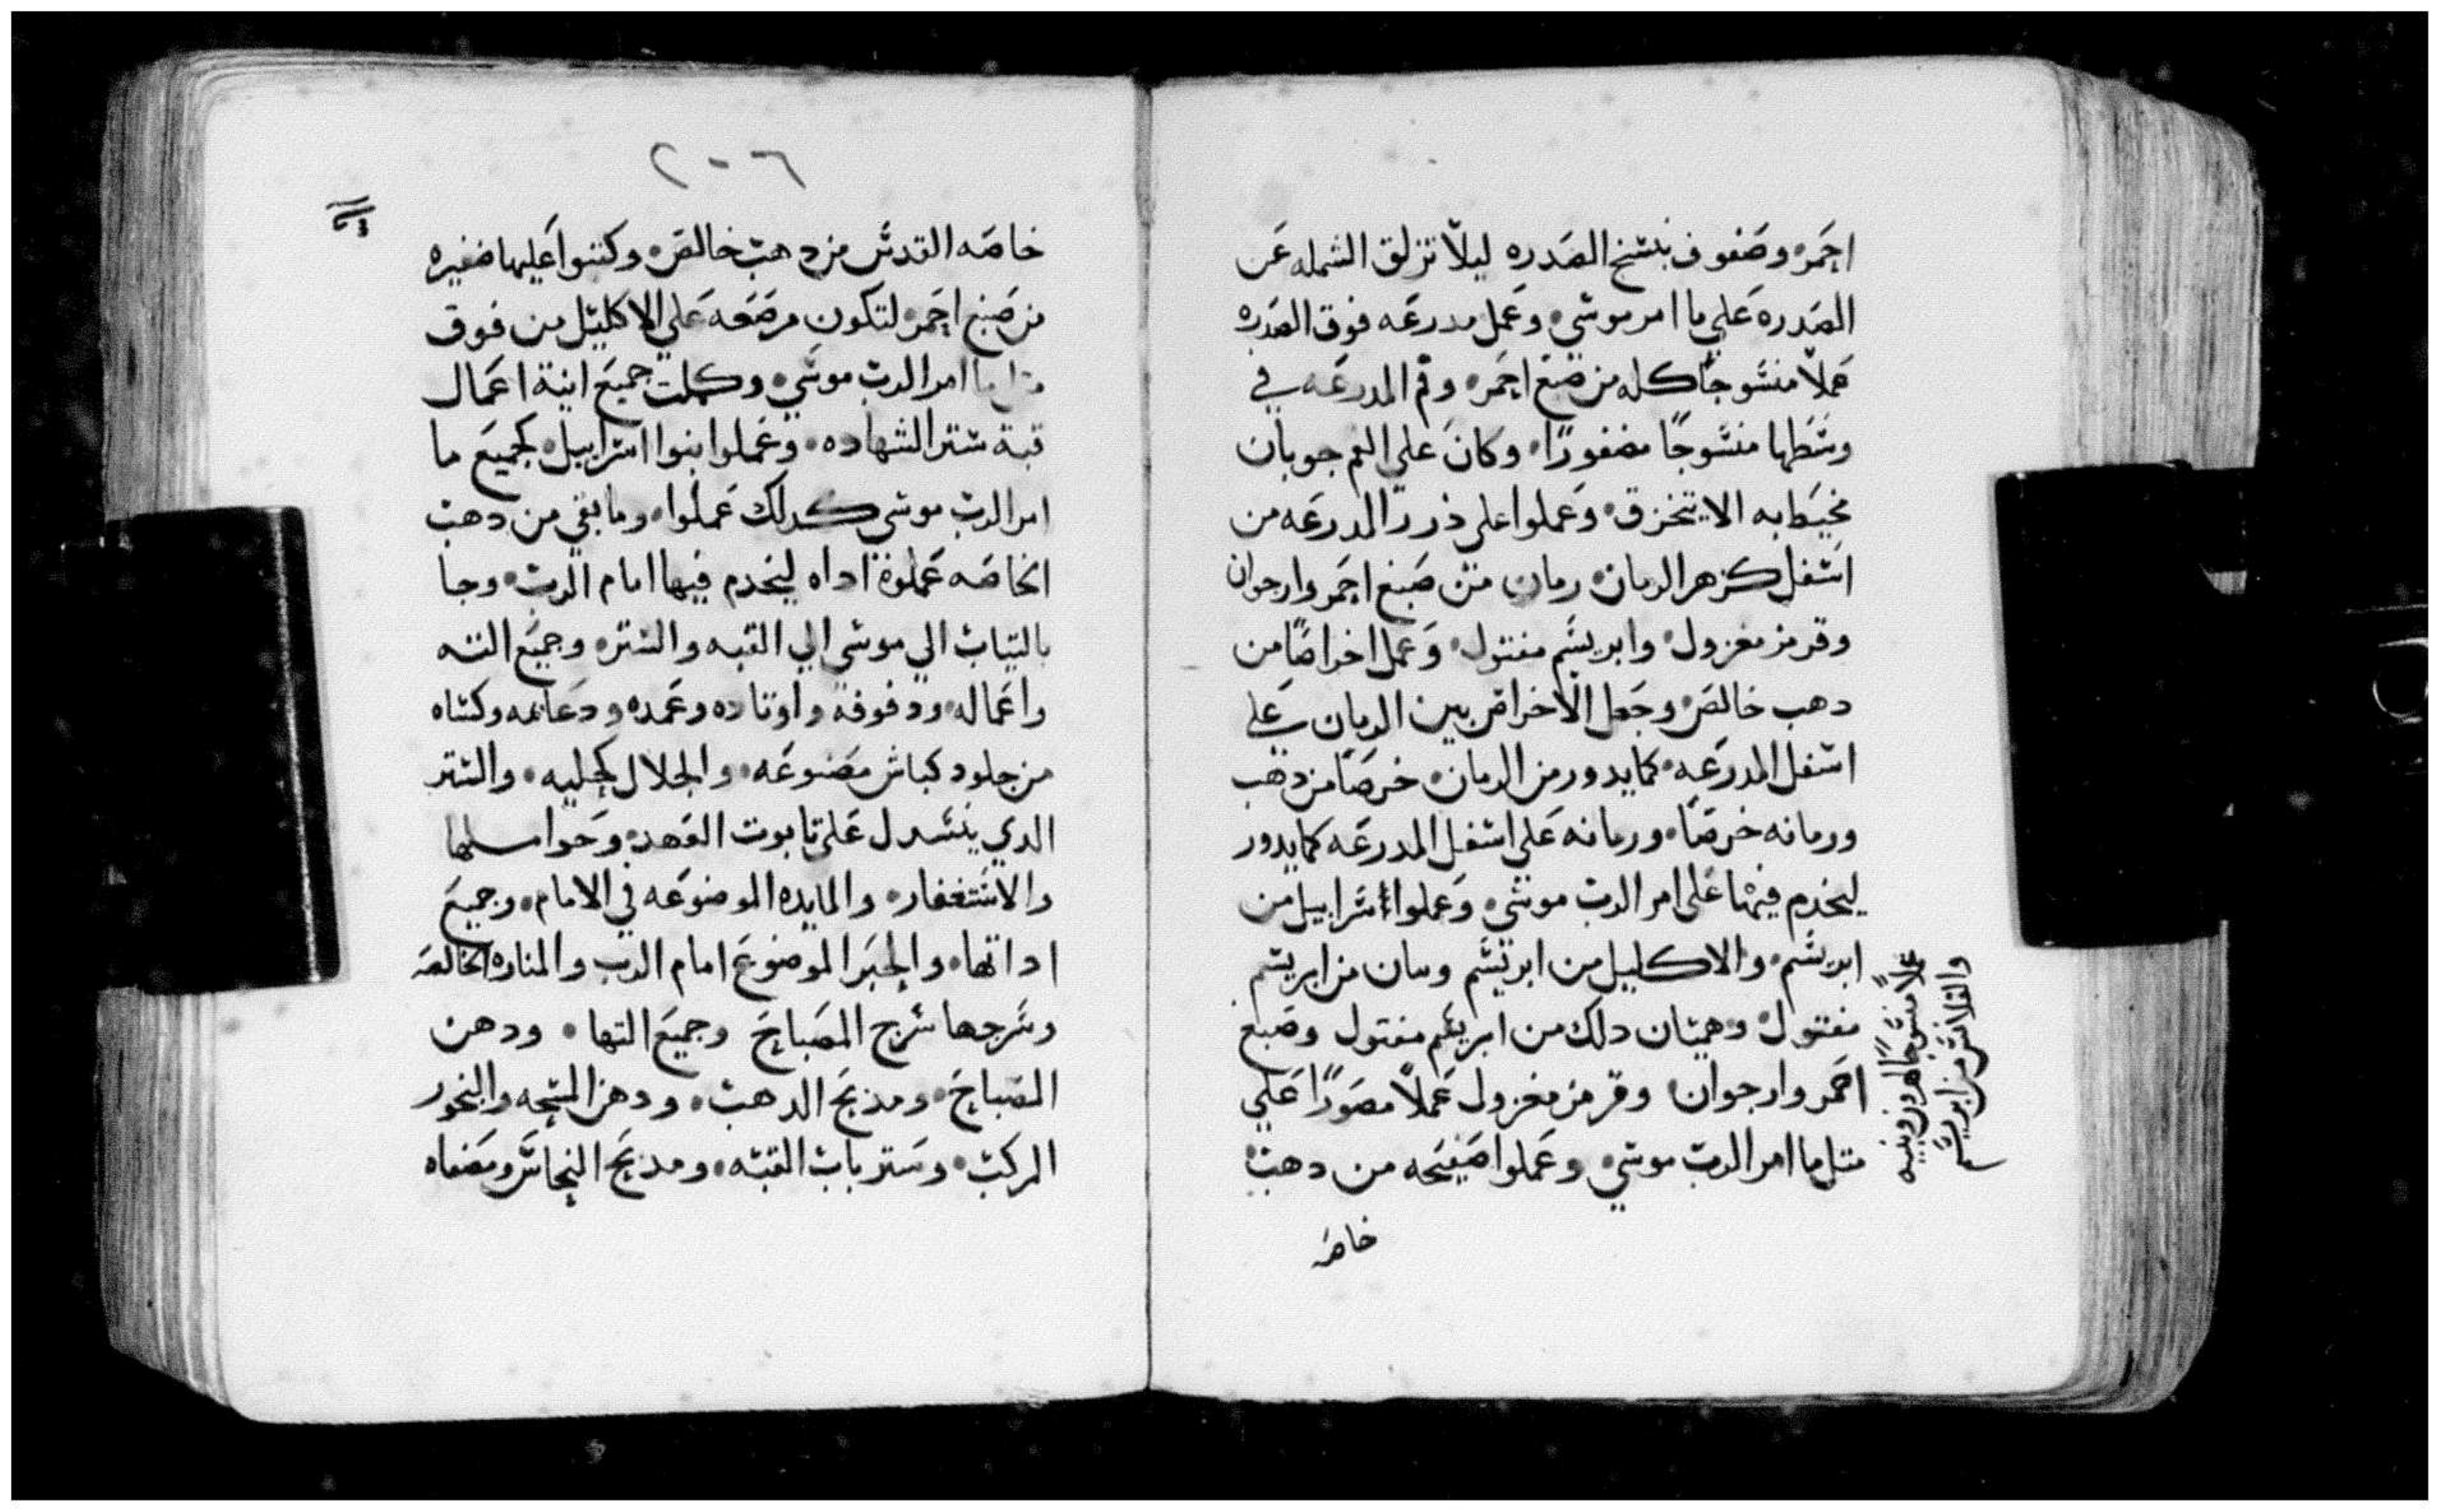 احمر وصفوف بنسخ الصدره ليلا تزلق الشمله عن
الصدره علي ما امر موسي وعمل مدرعه فوق الصدره
عملاً منسوجاً كله من صبغ احمر وفم المدرعه في
وسطها منسوجًا مضفورًا وكان علي الفم جوبان
مخيط به الا يتخزق وعملوا علي ذرر المدرعه من
اسفل كزهر الرمان رمان من صبغ احمر وارجوان
وقرمز مغزول وابريسم مفتول وعمل اخراصًا من
دهب خالص وجعل الاخراص بين الرمان علي
اسفل المدرعه كما يدور من الرمان خرصًا من دهب
ورمانه خرصًا ورمانه علي اسفل المدرعه كما يدور
ليخدم فيها علي امر الرب موسي وعملوا اسرابيل من
ابريسم والاكاليل من ابريسم وسان من ابريسم
مفتول وهميان دلك من ابريسم مفتول وصبغ
احمر وارجوان وقرمز مغزول عملاً مصورًا علي
متل ما امر الرب موسي وعملوا صفيحه من دهب
عملاً منسوجًا لهرون وبنيه
والقلانس من ابريسم
خاصه
٢٠٦
خاصه القدس من دهب خالص وكتبوا عليها ضفيره
من صبغ احمر لتكون مرصعه علي الاكليل من فوق
متل ما امر الرب موسي وكملت جميع انية اعمال
قبة ستر الشهاده وعملوا بنوا اسراييل كجميع ما
امر الرب موسي كدلك عملوا وما بقي من دهب
الخاصه عملوة اداه ليخدم فيها امام الرب وجا
بالتياب الي موسي الي القبه والستر وجميع الته
واعماله ودفوفه واوتاده وعمده ودعايمه وكساه
من جلود كباش مصنوعه والجلال كحليه والستر
الدي ينسدل علي تابوت العهد وحواملها
والاستغفار والمايده الموضوعه في الامام وجميع
اداتها والخبز الموضوع امام الرب والمناره الخالصه
وسرجها سرج المصباح وجميع التها ودهن
المصباح ومدبح الدهب ودهن المسحه والبخور
المركب وستر باب القبه ومدبح النحاس ومصفاه